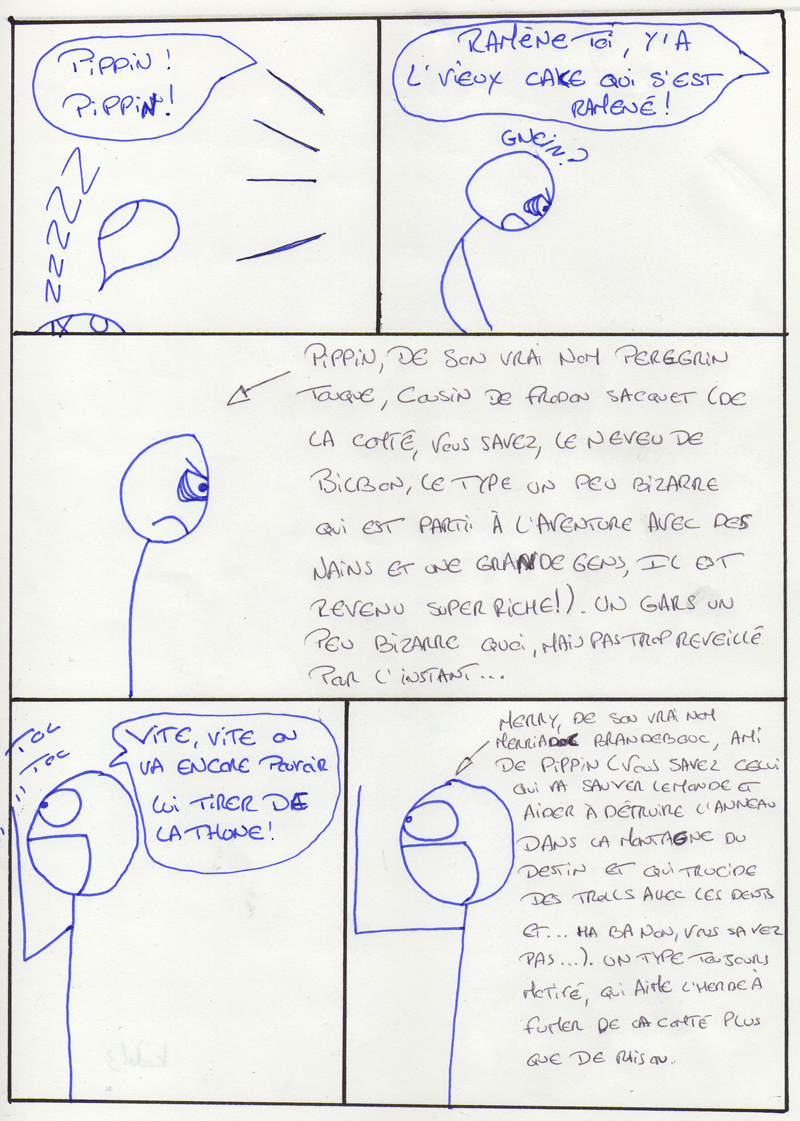 PIPPIN !
PIPPIN !
ZZZZZZ
RAMÈNE-TOI, Y'A
L'VIEUX CAKE QUI S'EST
RAMENÉ !
GNEIN ?
PIPPIN, DE SON VRAI NOM PEREGRIN
TOUQUE, COUSIN DE FRODON SACQUET (DE
LA COMTÉ, VOUS SAVEZ, LE NEVEU DE
BILBON, LE TYPE UN PEU BIZARRE
QUI EST PARTI À L'AVENTURE AVEC DES
NAINS ET UNE GRANDE GENS, IL EST
REVENU SUPER RICHE !). UN GARS UN
PEU BIZARRE QUOI, MAIN PAS TROP REVEILLÉ
POUR L'INSTANT...
TOC
TOC !!
VITE, VITE ON
VA ENCORE POUVOIR
LUI TIRER DE
LA THUNE !
MERRY, DE SON VRAI NOM
MERRIADOC BRANDEBOUC, AMI
DE PIPPIN (VOUS SAVEZ CELUI
QUI VA SAUVER LE MONDE ET
AIDER À DÉTRUIRE L'ANNEAU
DANS LA MONTAGNE DU
DESTIN ET QUI TRUCIDE
DES TROLLS AVEC LES DENTS
ET... HA BA NON, VOUS SAVEZ
PAS...). UN TYPE TOUJOURS
MOTIVÉ, QUI AIME L'HERBE À
FUMER DE LA COMTÉ PLUS
QUE DE RAISON..